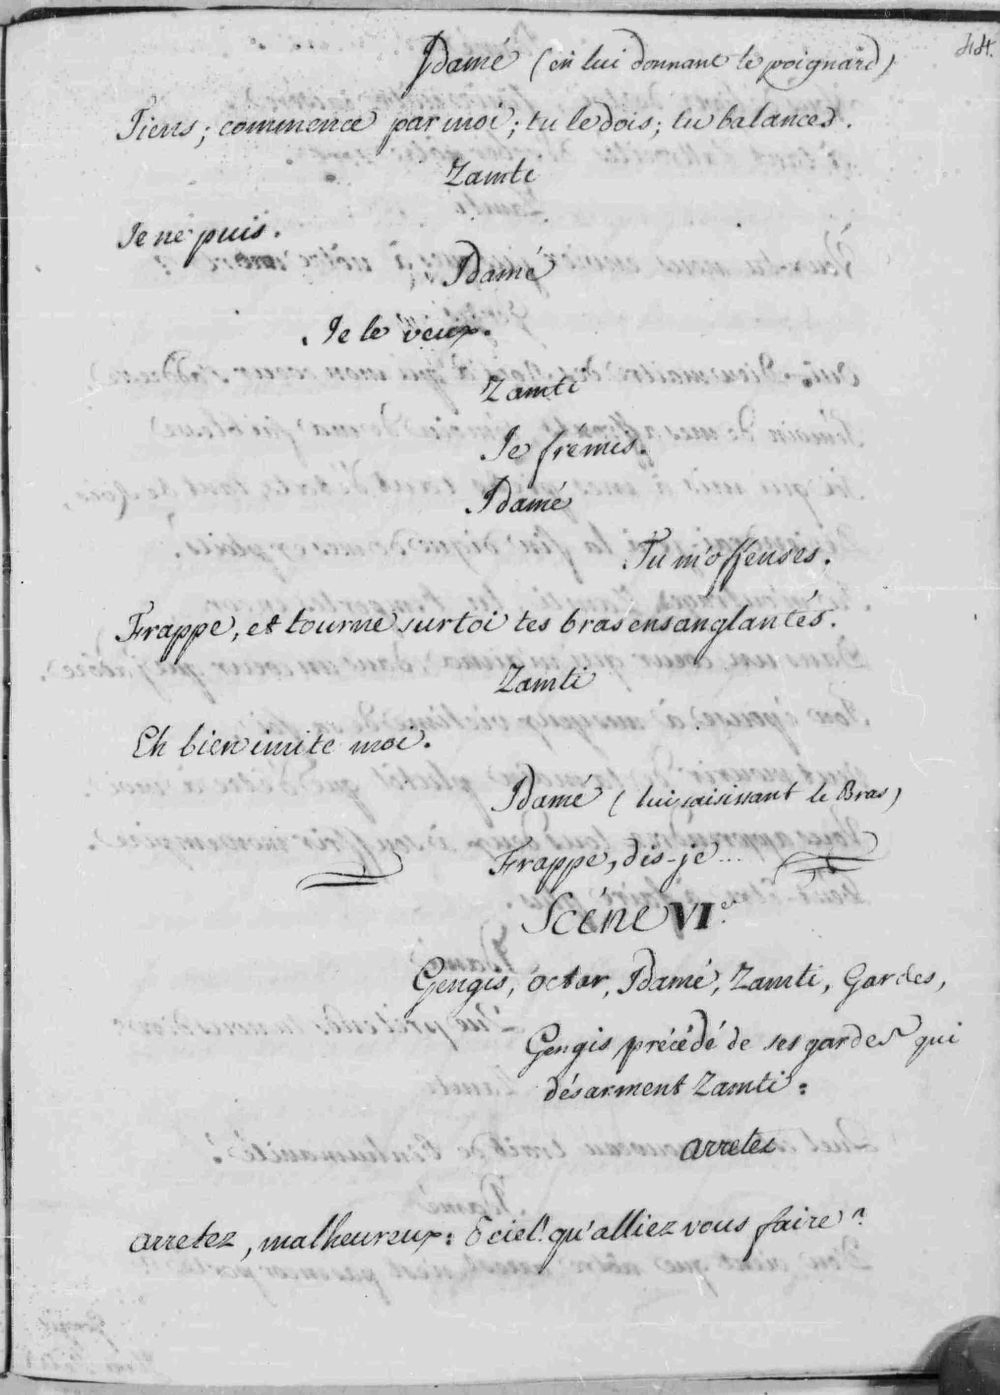 44.
Idamé (en lui donnant le poignard)
Tiens; commence par moi; tu le dois; tu balances.
Zamti
Je ne puis.
Idamé
Je le veux.
Zamti
Je fremis.
Idamé
Tu m'offenses.
Frappe, et tourne sur toi tes bras ensanglantés.
Zamti
Eh bien imite moi.
Idamé (lui saisissant le Bras)
Frappe, dis-je...
Scéne VI.e
Gengis, octar, Idamé, Zamti, Gardes,
Gengis précédé de ses gardes qui
désarment Zamti:
arretez
arretez, malheureux: O ciel! qu'alliez vous faire?